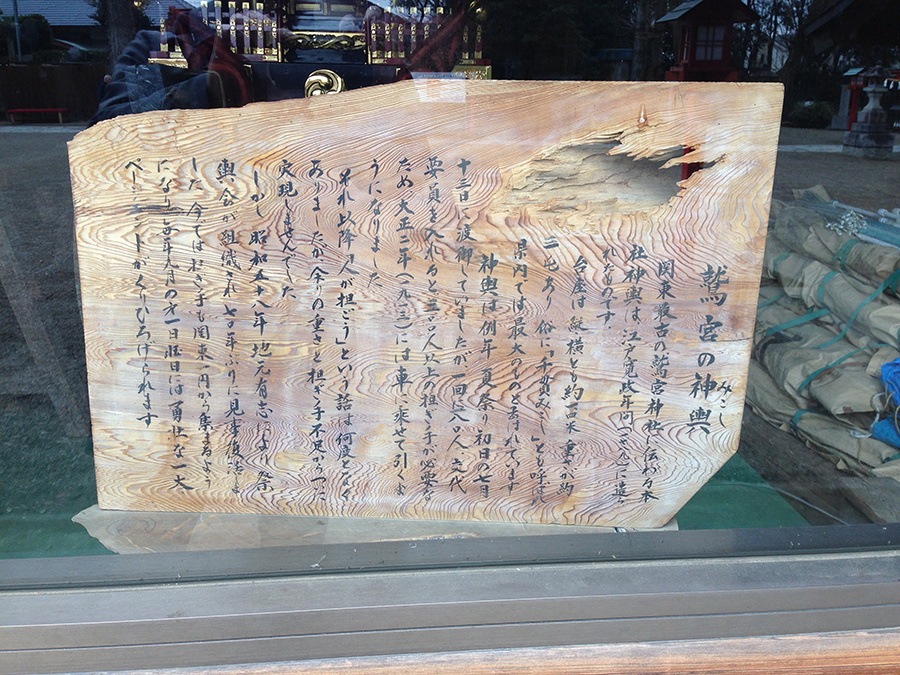 鷲宮の神輿
みこし
関東最古の鷲宮神社に伝わる本
社神輿は、江戸寛政年間(一七八九)に造
れたものです。
台座は、縦横とも約
三屯あり 俗に「千貫みこし」とも呼ばれ
県内では最大のものと言れています
神輿は例年、夏祭り初日の七月
十三日に渡御していましたが一回
要員を入れると三六〇人以上の担ぎ手が必要な
ため大正二年(一九一三)には車に乗せて引くよ
うになりました
それ以降「人が担ごう」という話は何度となく
ありましたが余りの重さと担ぎ手不足からついに
実現しませんでした
しかし昭和五十八年、地元有志により祭
輿会が組織され七〇年ぶりに見事復活しま
した 今では担ぎ手も関東一円から集まるよう
になり毎年九月の才一日曜日には勇壮な一大
ページェントがくりひろげられます